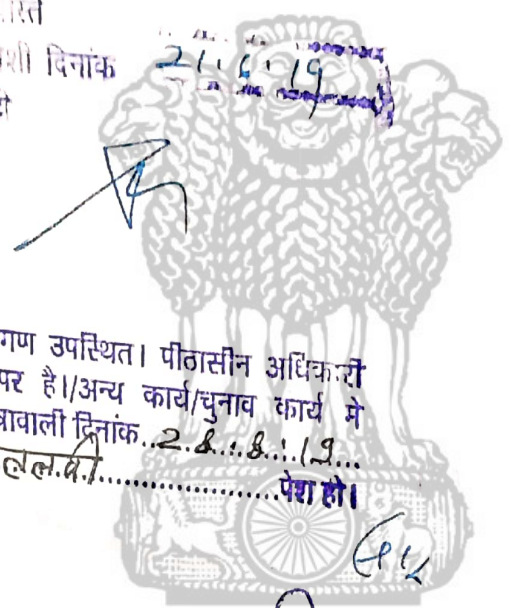 दिनांक 21.6.19
गण उपस्थित। पीठासीन अधिकारी
पर है।/अन्य कार्य/चुनाव कार्य मे
दिनांक..2.8.:.8.:.19...
पेश हो।